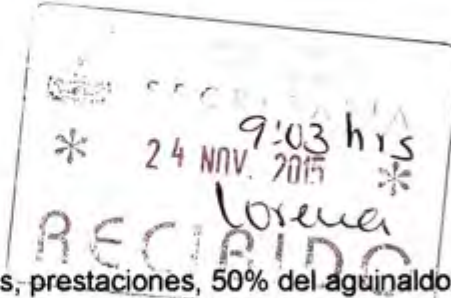 SECRETARIA
9:03 hrs
* 24 NOV. 2015 *
Lorena
RECIBIDO
s, prestaciones, 50% del aguinaldo